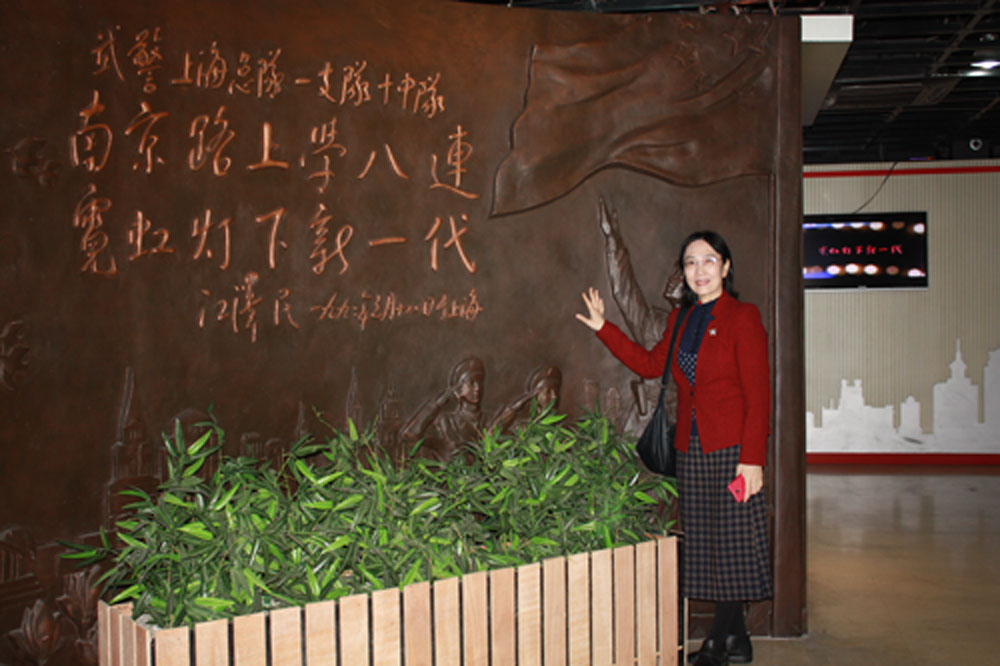 武警上海总队一支队十中队
南京路上学八連
霓虹灯下新一代
江澤民一九九二年三月十八日于上海
霓虹灯下新一代